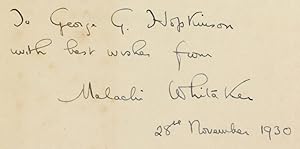 To George G. Hopkinson
with best wishes from
Malachi Whitaker
28th November 1930